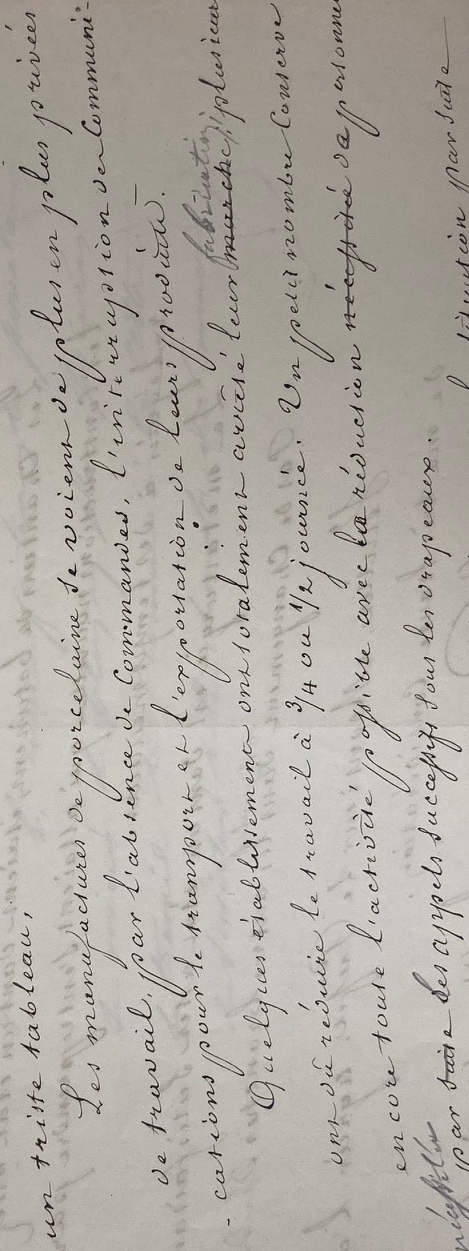 un triste tableau,
Les manufactures de porcelaine se voient de plus en plus privées
de travail, par l'absence de Commandes, l'interruption de Communi-
-cations pour le transport et l'exportation de leurs produits.
Quelques établissements ont totalement arrêté leur marche, fabrication plusieurs
ont dû réduire le travail à 3/4 ou 1/2 journée. Un petit nombre Conserve
encore toute l'activité possible avec la réduction nécessitée de personnel
par suite des appels successifs sous les drapeaux.
par suite